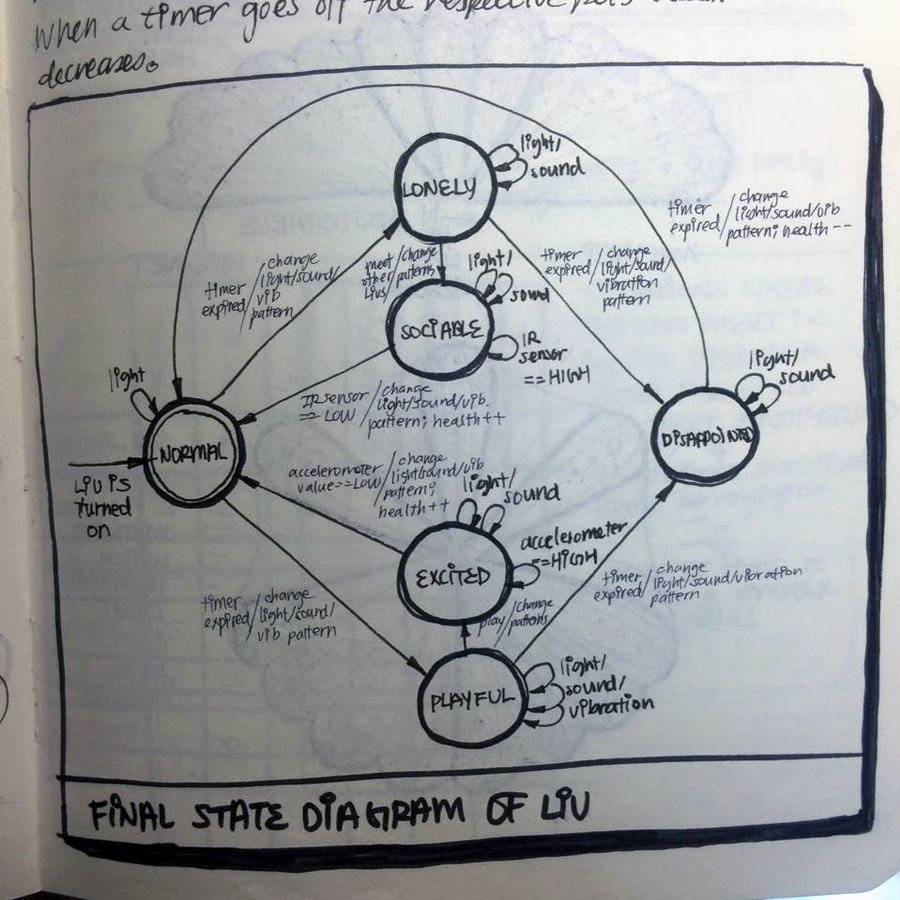 when a timer goes off the respective
decreases.
LONELY
light/
sound
timer
expired/
change
light/sound/vib
pattern; health --
timer
expired/
change
light/sound/
vib
pattern
meet
other
Livs/
change
patterns
light/
sound
timer
expired/
change
light/sound/
vibration
pattern
SOCIABLE
IR
sensor
==HIGH
light
IR sensor
== LOW/
change
light/sound/vib.
pattern; health++
light/
sound
NORMAL
DISAPPOINTED
LIV is
turned
on
accelerometer
value==LOW/
change
light/sound/vib
pattern;
health++
light/
sound
EXCITED
accelerometer
==HIGH
timer
expired/
change
light/sound/
vib pattern
play/
change
patterns
timer
expired/
change
light/sound/vibration
pattern
PLAYFUL
light/
sound/
vibration
FINAL STATE DIAGRAM OF LIV